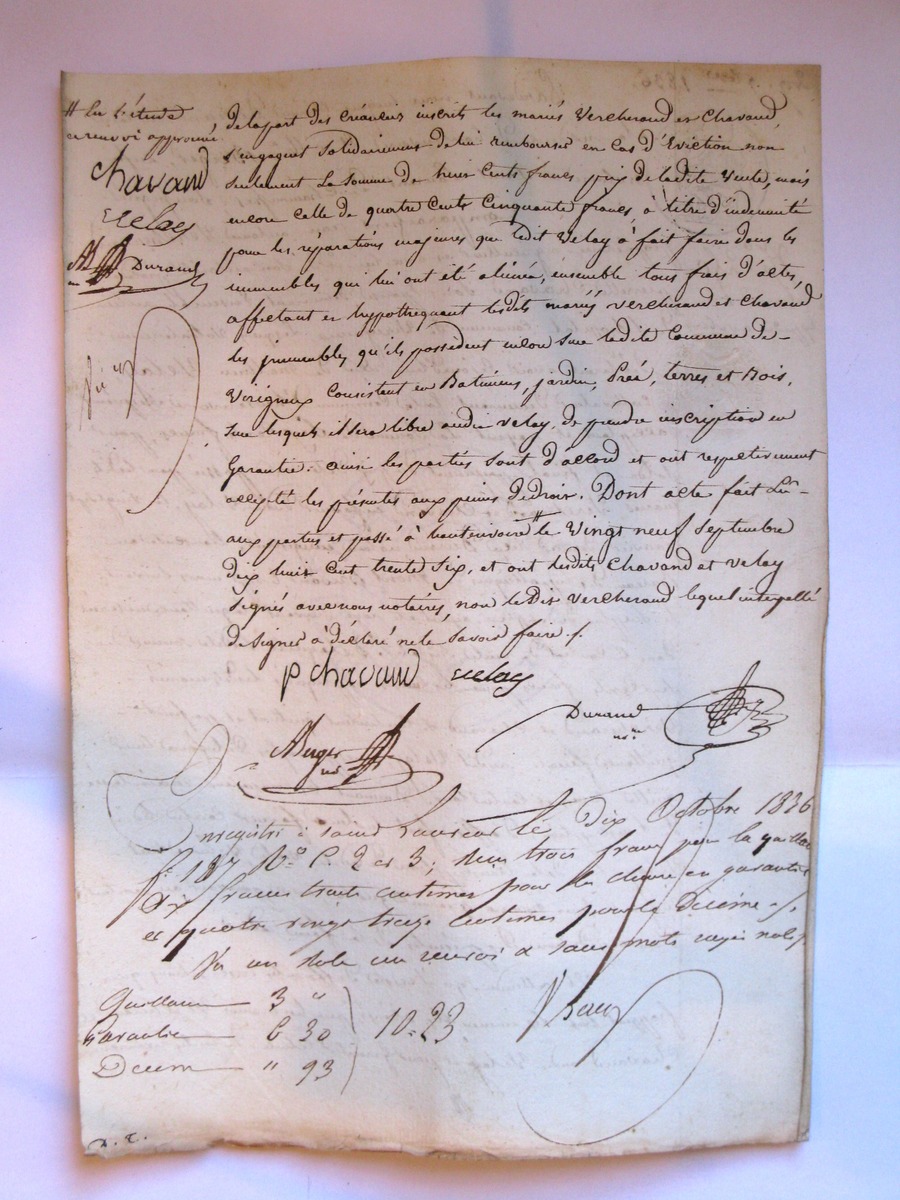 # En l'étude
ce renvoi approuvé
chavand
velay
Durand
de la part des créanciers inscrits les mariés Vercherand et Chavand,
s'engagent solidairement de lui rembourser en cas d'Eviction non
seulement la somme de huit cents francs prix de ladite Vente, mais
encore celle de quatre Cents Cinquante francs, à titre d'indemnité
pour les réparations majeures que ledit Velay à fait faire dans les
immeubles qui lui ont été aliénés, ensemble tous frais d'actes,
affectant et hypothequant lesdits mariés vercherand et Chavand
les immeubles qu'ils possèdent encore sur ladite Commune de
Virigneux Consistant en Batiments, jardin, Prés, terres et Bois,
sur lesquels il sera libre audit velay, de prendre inscription en
Garantie. ainsi les parties sont d'accord et ont respectivement
accepté les présentes aux peines de droit. Dont acte fait Lû
aux parties et passé à # le Vingt neuf Septembre
dix huit cent trente six, et ont lesdits Chavand et velay
signés avec nous notaires, non le dit vercherand lequel interpellé
de signer à déclaré ne le savoir faire ./.
p chavand velay
Durand
nre
Auger
nre
Enregistré à saint le dix Octobre 1836
f° 187 R° C. 2 et 3; Reçu trois francs pour la quittance
six francs trente centimes pour la clause en garantie
et quatre vingt treize centimes pour le Décime ./.
un role un renvoi & sans mots rayés nuls ./.
Quittance 3 "
Garantie 6 30
10.23
Décime " 93
D. T.